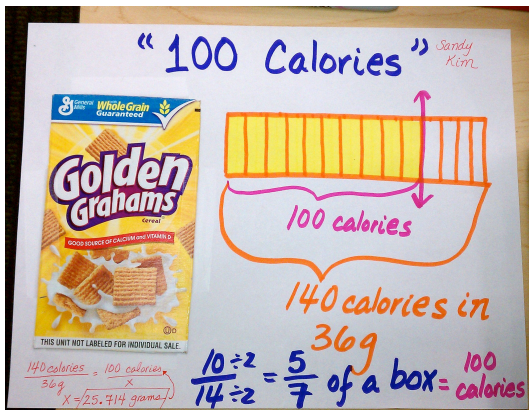 “100 Calories”
Sandy
Kim
General
Mills
Whole Grain
Guaranteed
Golden
Grahams
Cereal
GOOD SOURCE OF CALCIUM and VITAMIN D
THIS UNIT NOT LABELED FOR INDIVIDUAL SALE.
100 calories
140 calories in
36g
140 calories / 36g = 100 calories / x
x = 25.714 grams
10 ÷2 / 14 ÷2 = 5/7 of a box = 100 calories